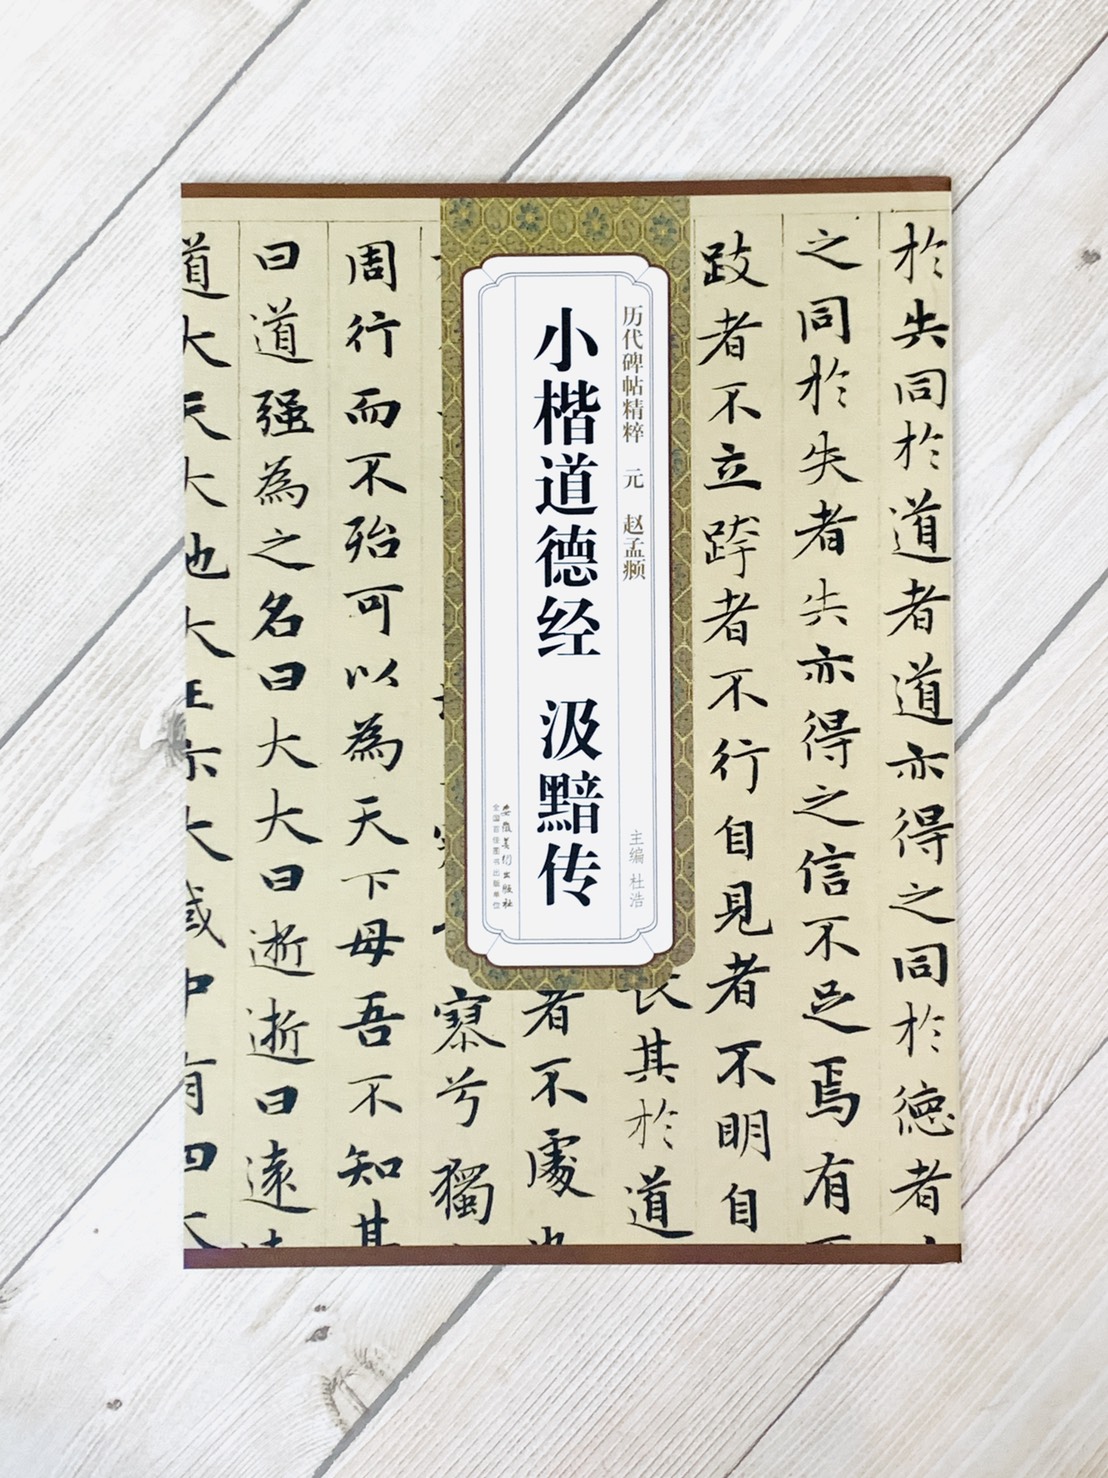 历代碑帖精粹 元 赵孟頫
主编 杜浩
小楷道德经 汲黯传
安徽美术出版社
全国百佳图书出版单位
於失同於道者道亦得之同於德者
之同於失者失亦得之信不足焉有
跂者不立跨者不行自见者不明自
长其於道
者不處也
寮兮獨
周行而不殆可以為天下母吾不知其
曰道强為之名曰大大曰逝逝曰遠
道大天大地大王亦大域中有四大